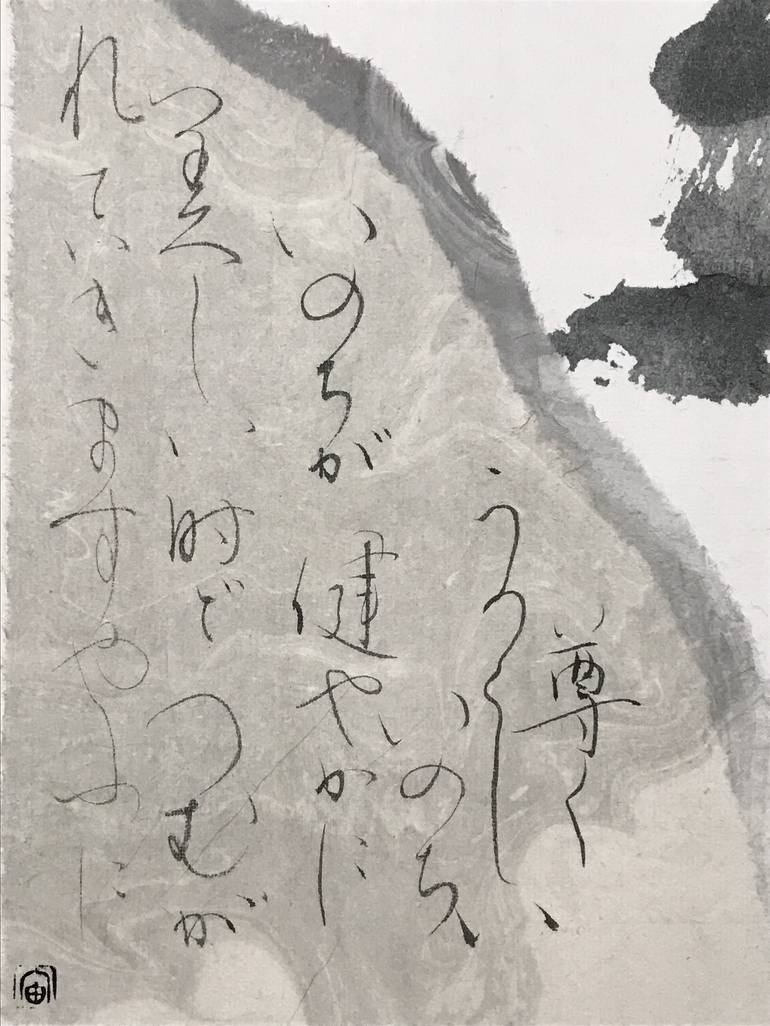 尊く
うつくしい
いのち
いのちが 健やかに
美しい時で つむが
れていきますやふに